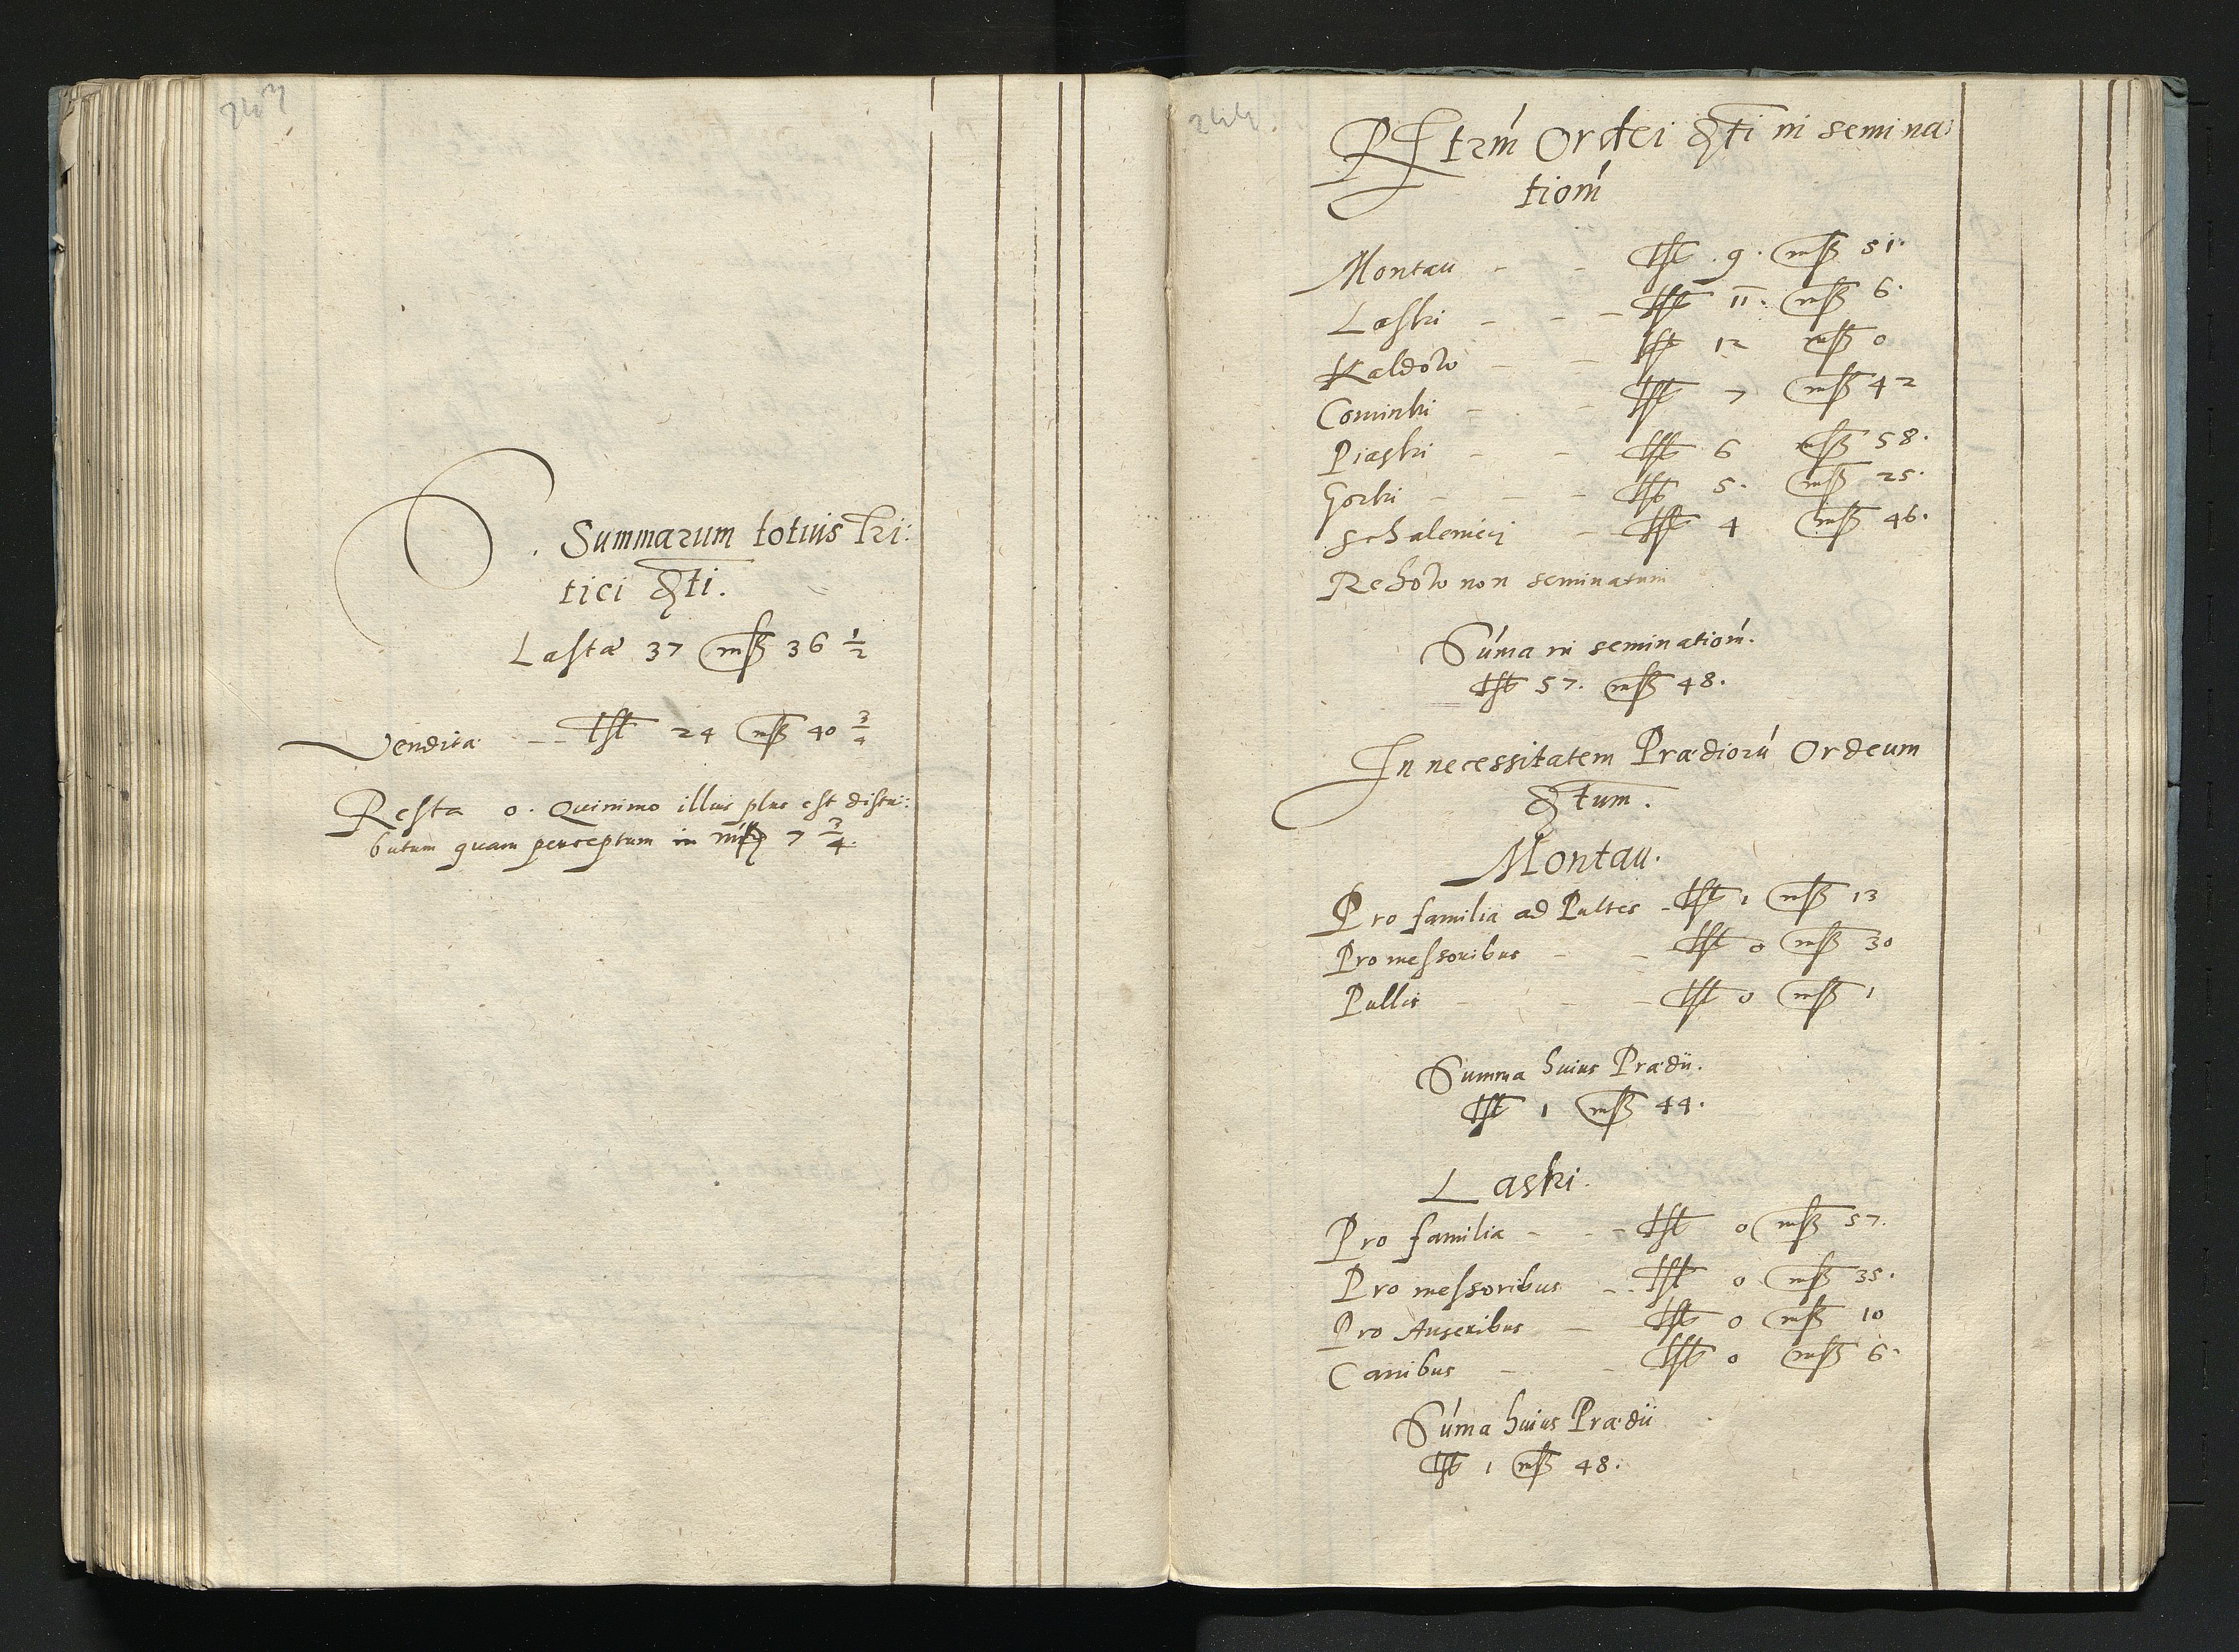 243
Summarum totius Tri:
tici Exti.
Lasta 37 mß 36 1/2
Vendita -- Lst 24 mß 40 3/4
Resta 0. Quinimo illius plus est distri:
butum quam perceptum in mß 7 3/4
244.
Ordei Exti in semina
tiom
Montau - - Lst .9. mß 51.
Laski - - - Lst 11. mß 6.
Kaldow - - Lst 12 mß 0
Cominki - - Lst 7 mß 42
Piaski - - Lst 6 mß 58.
Gorki - - - Lst 5. mß 25.
Schalenicij - Lst 4 mß 46.
Rehow non seminatum
Súma in seminatiom.
Lst 57. mß 48.
In necessitatem Prædiorú Ordeum
Extum.
Montau.
Pro familia ad Pultes - Lst 1 mß 13
Pro messoribus - - Lst 0 mß 30
Pullis - - - Lst 0 mß 1
Summa huius Prædii.
Lst 1 mß 44.
Laski.
Pro familia - - - Lst 0 mß 57.
Pro messoribus - - Lst 0 mß 35.
Pro Anseribus - Lst 0 mß 10
Canibus - - Lst 0 mß 6.
Súma huius Prædii
Lst 1 mß 48.